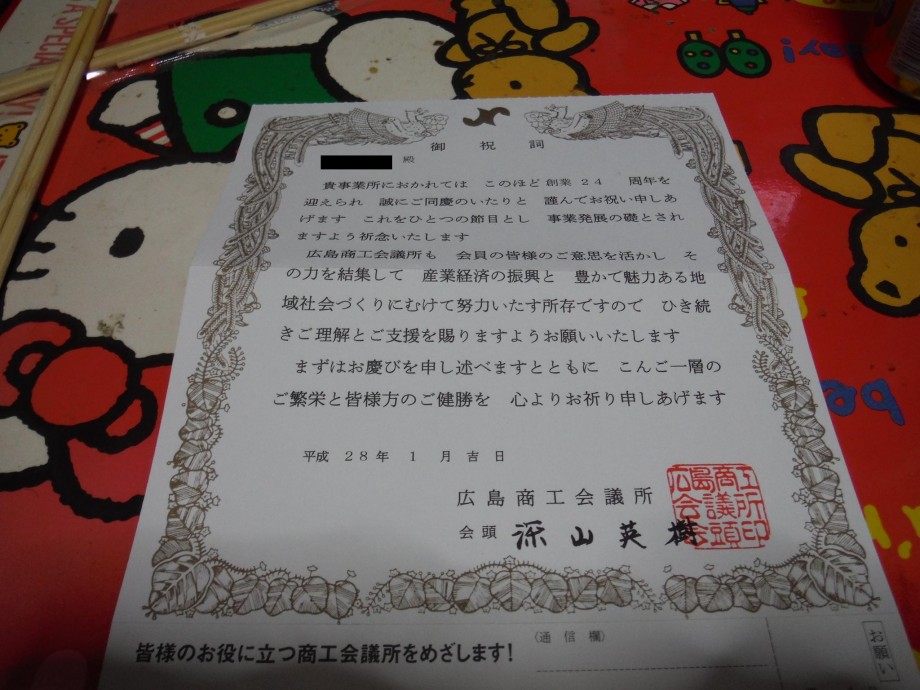 御祝詞
殿
貴事業所におかれては このほど創業24 周年を
迎えられ 誠にご同慶のいたりと 謹んでお祝い申しあ
げます これをひとつの節目とし 事業発展の礎とされ
ますよう祈念いたします
広島商工会議所も 会員の皆様のご意思を活かし そ
の力を結集して 産業経済の振興と 豊かで魅力ある地
域社会づくりにむけて努力いたす所存ですので ひき続
きご理解とご支援を賜りますようお願いいたします
まずはお慶びを申し述べますとともに こんご一層の
ご繁栄と皆様方のご健勝を 心よりお祈り申しあげます
平成 28年 1 月吉日
広島商工会議所
会頭 深山英樹
広島商工
会議所
会頭印
皆様のお役に立つ商工会議所をめざします!
〈通信欄〉
お願い
A SPECIAL